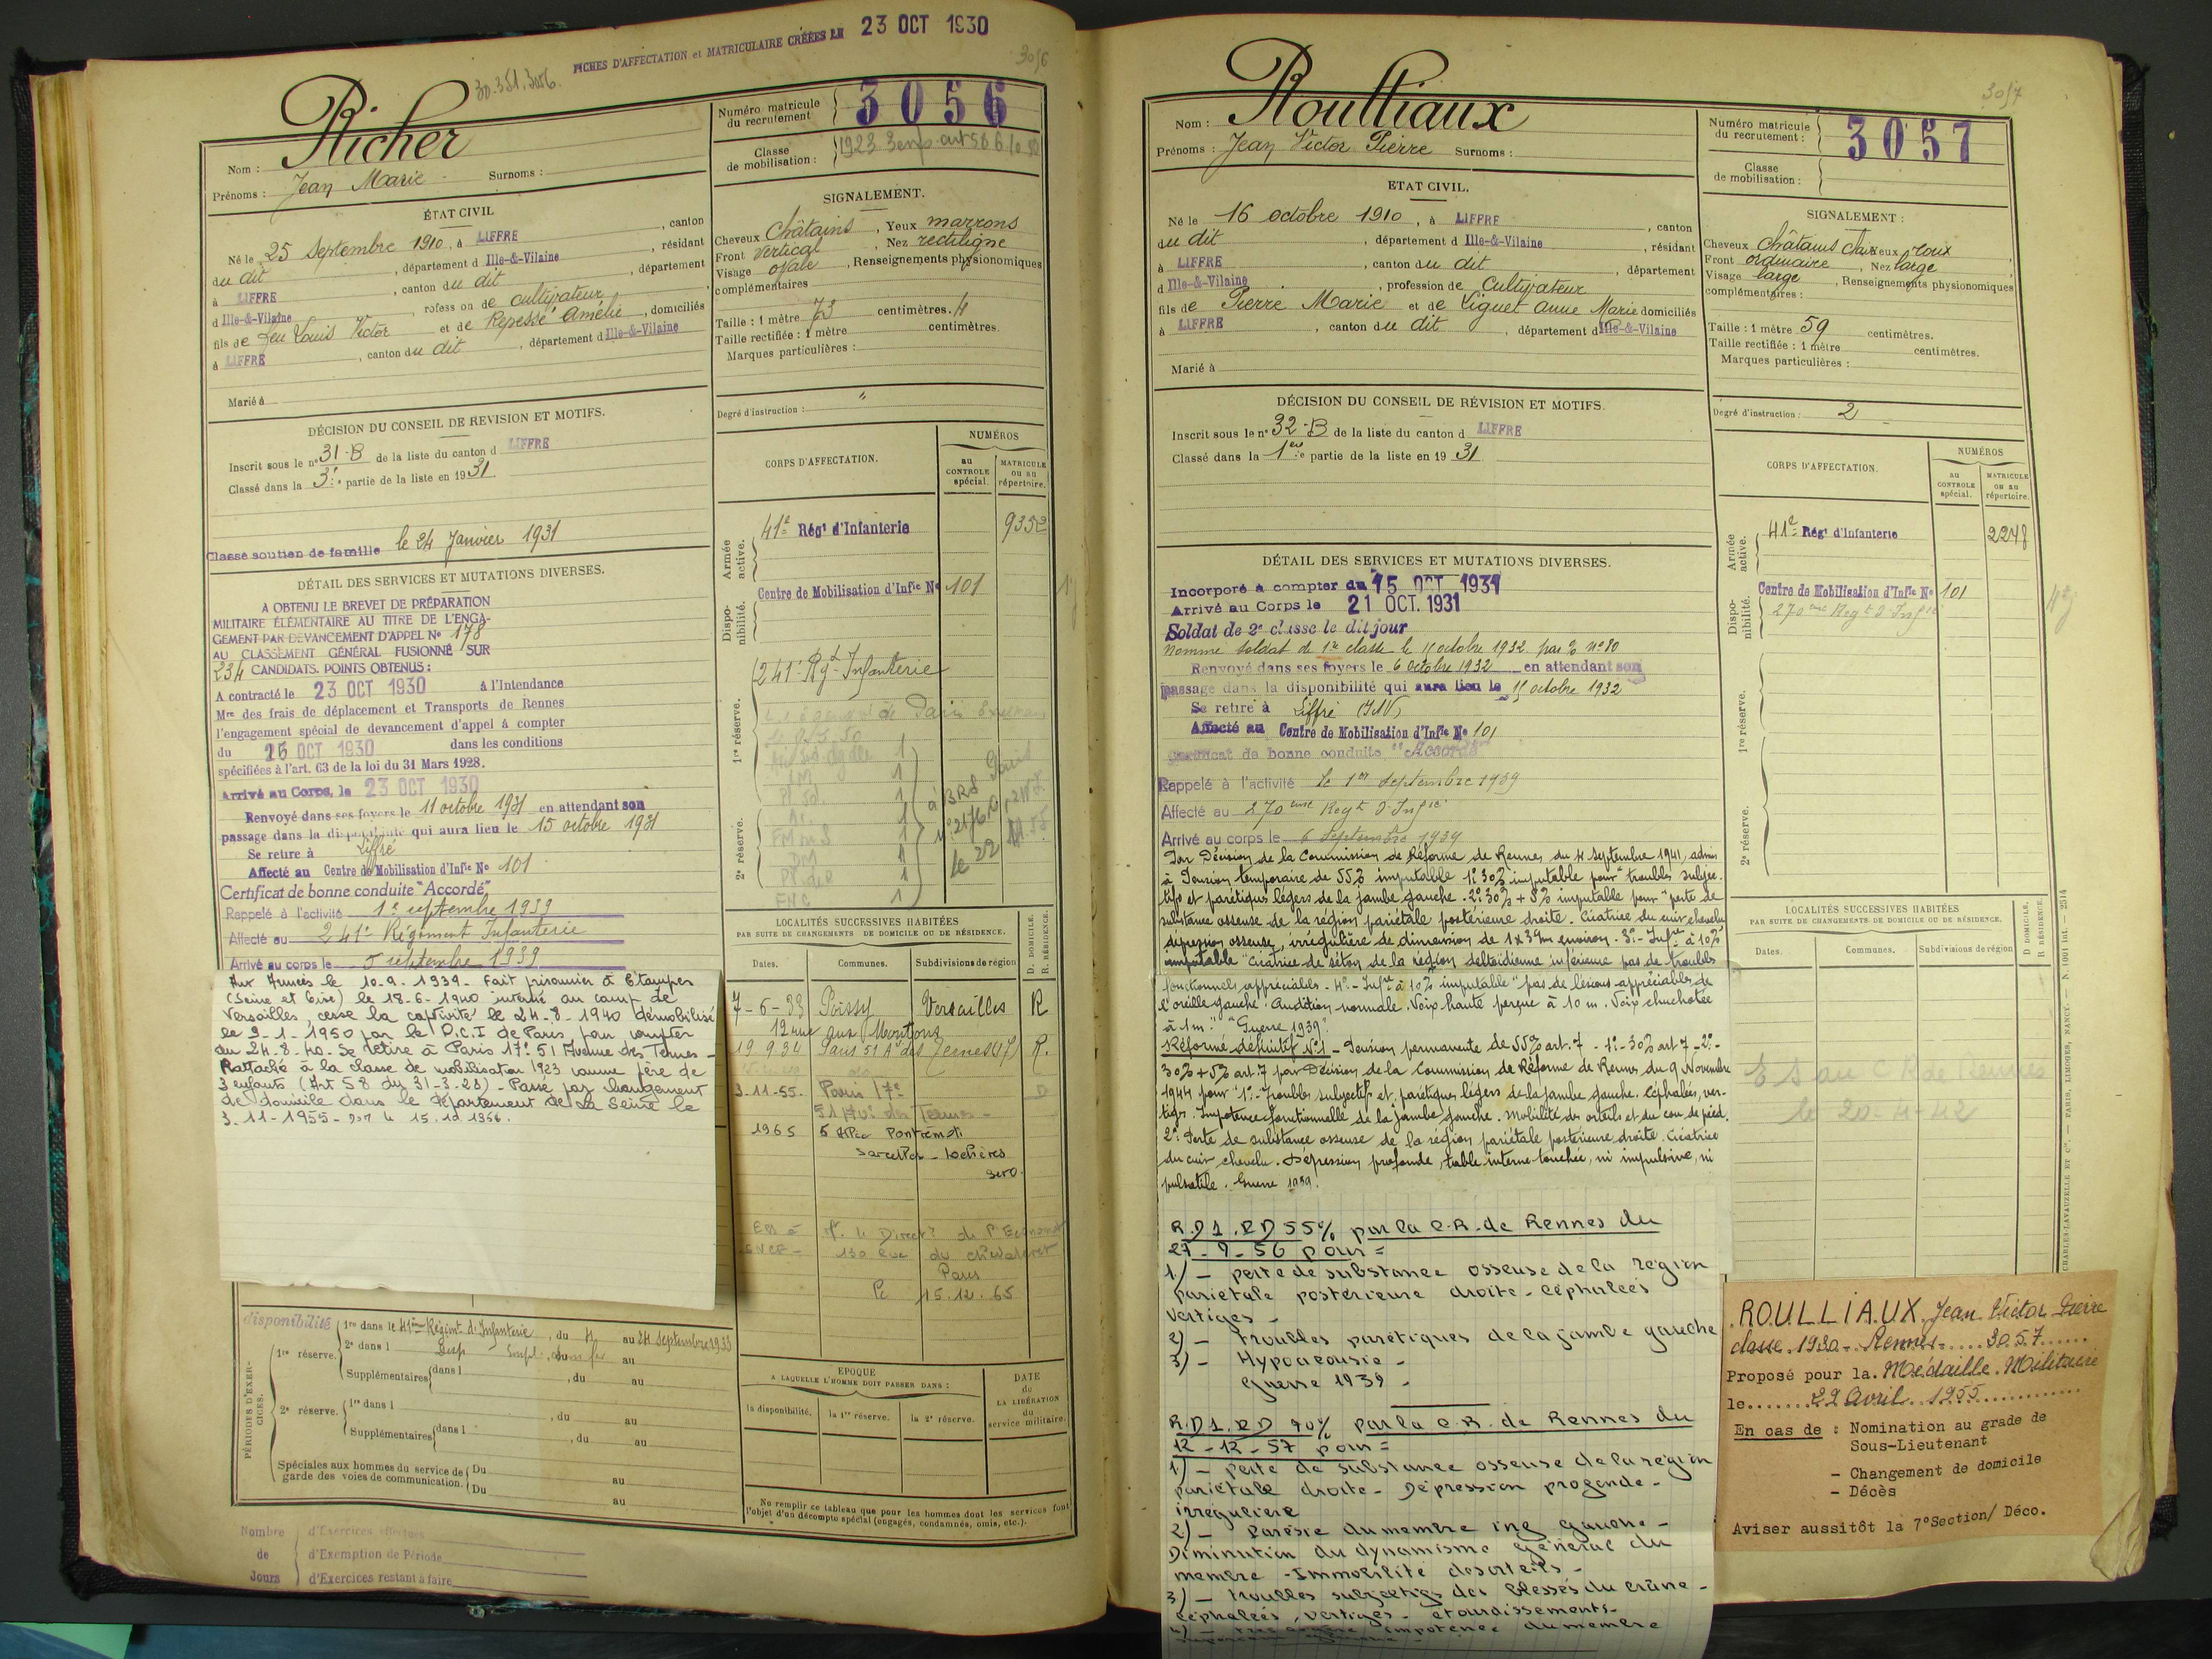 FICHES D'AFFECTATION et MATRICULAIRE CRÉÉES LE 23 OCT 1930
30.351.3056.
3056
Nom : Richer
Prénoms : Jean Marie Surnoms :
Numéro matricule du recrutement 3056
Classe de mobilisation : 1923 3 enfs art 58
ÉTAT CIVIL
Né le 25 Septembre 1910, à LIFFRE, canton
du dit, département d Ille-&-Vilaine, résidant
à LIFFRE, canton du dit, département
d Ille-&-Vilaine, profession de cultivateur
fils de feu Louis Victor et de Repessé Amélie, domiciliés
à LIFFRE, canton du dit, département d Ille-&-Vilaine
Marié à
SIGNALEMENT.
Cheveux Châtains, Yeux marrons
Front Vertical, Nez rectiligne
Visage ovale, Renseignements physionomiques
complémentaires
Taille : 1 mètre 73 centimètres. 4
Taille rectifiée : 1 mètre centimètres.
Marques particulières :
Degré d'instruction : "
DÉCISION DU CONSEIL DE REVISION ET MOTIFS.
Inscrit sous le n° 31-B de la liste du canton d LIFFRE
Classé dans la 3e partie de la liste en 1931
Classé soutien de famille le 24 Janvier 1931
DÉTAIL DES SERVICES ET MUTATIONS DIVERSES.
A OBTENU LE BREVET DE PRÉPARATION
MILITAIRE ÉLÉMENTAIRE AU TITRE DE L'ENGA-
GEMENT PAR DEVANCEMENT D'APPEL N° 178
AU CLASSEMENT GÉNÉRAL FUSIONNÉ SUR
234 CANDIDATS. POINTS OBTENUS :
A contracté le 23 OCT 1930 à l'Intendance
Mre des frais de déplacement et Transports de Rennes
l'engagement spécial de devancement d'appel à compter
du 26 OCT 1930 dans les conditions
spécifiées à l'art. 63 de la loi du 31 Mars 1928.
Arrivé au Corps, le 23 OCT 1930
Renvoyé dans ses foyers le 11 octobre 1931 en attendant son
passage dans la disponibilité qui aura lieu le 15 octobre 1931
Se retire à Liffré
Affecté au Centre de Mobilisation d'Infie N° 101
Certificat de bonne conduite "Accordé"
Rappelé à l'activité 1er septembre 1939
Affecté au 241e Régiment Infanterie
Arrivé au corps le 5 septembre 1939
Aux Armées le 10-9-1939- Fait prisonnier à Etampes
(Seine et Oise) le 18-6-1940 interné au camp de
Versailles, cesse la captivité le 24-8-1940 démobilisé
le 9-1-1950 par le D.C.I de Paris pour compter
du 24-8-40. Se retire à Paris 17e 51 Avenue des Ternes-
Rattaché à la classe de mobilisation 1923 comme père de
3 enfants (Art 58 du 31-3-28) - Passé par changement
de domicile dans le département de la Seine le
3.11-1955-
disponibilité
PÉRIODES D'EXERCICES.
1re dans le 41ème Régimt d'Infanterie, du 4 au 24 septembre 1933
1re réserve. 2e dans l Disp au
Supplémentaires dans l, du au
2e réserve. 1re dans l, du au
Supplémentaires dans l, du au
Spéciales aux hommes du service de garde des voies de communication. Du au
Du au
Nombre de Jours
d'Exercices effectués
d'Exemption de Période
d'Exercices restant à faire
CORPS D'AFFECTATION.
NUMÉROS
au CONTROLE spécial.
MATRICULE ou au répertoire.
Armée active. 41e Régt d'Infanterie 9352
Disponibilité. Centre de Mobilisation d'Infie N° 101
1re réserve. 241e Rgt Infanterie
2e réserve.
LOCALITÉS SUCCESSIVES HABITÉES
PAR SUITE DE CHANGEMENTS DE DOMICILE OU DE RÉSIDENCE.
Dates. Communes. Subdivisions de région D. DOMICILE. R. RÉSIDENCE.
7-6-33 Poissy Versailles R
12 rue aux Moutons
19 9 34 Paris 51 Ae des Ternes (17) R.
3-11-55. Paris 17e D
51 Ave des Ternes-
1965 6 Allée Pontrémoli
Sarcelles - Lochères
130 Rue du Chevaleret
Paris
15.12.65
EPOQUE
A LAQUELLE L'HOMME DOIT PASSER DANS :
la disponibilité. la 1re réserve. la 2e réserve.
DATE de LA LIBÉRATION du service militaire.
Ne remplir ce tableau que pour les hommes dont les services font
l'objet d'un décompte spécial (engagés, condamnés, omis, etc.).
3057
Nom : Roulliaux
Prénoms : Jean Victor Pierre Surnoms :
Numéro matricule du recrutement : 3057
Classe de mobilisation :
ETAT CIVIL.
Né le 16 octobre 1910, à LIFFRE, canton
du dit, département d Ille-&-Vilaine, résidant
à LIFFRE, canton du dit, département
d Ille-&-Vilaine, profession de Cultivateur
fils de Pierre Marie et de Liguet Anne Marie domiciliés
à LIFFRE, canton du dit, département d Ille-&-Vilaine
Marié à
SIGNALEMENT :
Cheveux châtains clairs Yeux roux
Front ordinaire, Nez large
Visage large, Renseignements physionomiques
complémentaires :
Taille : 1 mètre 59 centimètres.
Taille rectifiée : 1 mètre centimètres.
Marques particulières :
Degré d'instruction : 2
DÉCISION DU CONSEIL DE RÉVISION ET MOTIFS.
Inscrit sous le n° 32-B de la liste du canton d LIFFRE
Classé dans la 1ere partie de la liste en 1931
DÉTAIL DES SERVICES ET MUTATIONS DIVERSES.
Incorporé à compter du 15 OCT 1931
Arrivé au Corps le 21 OCT. 1931
Soldat de 2e classe le dit jour
Nommé soldat de 1re classe le 11 octobre 1932 par n° 80
Renvoyé dans ses foyers le 6 octobre 1932 en attendant son
passage dans la disponibilité qui aura lieu le 15 octobre 1932
Se retire à Liffré (I&V)
Affecté au Centre de Mobilisation d'Infie N° 101
Certificat de bonne conduite "Accordé"
Rappelé à l'activité le 1er septembre 1939
Affecté au 270eme Regt d'Infie
Arrivé au corps le 6 Septembre 1939
Par Décision de la Commission de Réforme de Rennes du 4 Septembre 1941, admis
à Pension temporaire de 55% imputable 1° 30% imputable pour "troubles subjec-
tifs et parétiques légers de la jambe gauche. 2° 30% + 5% imputable pour "perte de
substance osseuse de la région pariétale postérieure droite. Cicatrice du cuir chevelu
dépression osseuse, irrégulière de dimension de 1x3 environ. 3° - Infre à 10%
imputable "Cicatrice de séton de la région deltoïdienne inférieure pas de troubles
fonctionnels appréciables. 4° - Infre à 10% imputable "pas de lésions appréciables de
l'oreille gauche. Audition normale. Voix haute perçue à 10 m. Voix chuchotée
à 1m." "Guerre 1939".
Réformé définitif N°1 - Pension permanente de 55% art. 7 - 1°-30% art 7 - 2° -
30% + 5% art. 7 par Décision de la Commission de Réforme de Rennes du 9 Novembre
1944 pour "1° - Troubles subjectifs et parétiques légers de la jambe gauche. Céphalées, ver-
tiges. Impotence fonctionnelle de la jambe gauche. Mobilité des orteils et du cou de pied.
2° Perte de substance osseuse de la région pariétale postérieure droite. Cicatrice
du cuir chevelu. Dépression profonde, table interne touchée, ni impulsive, ni
pulsatile. Guerre 1939.
R.D1. RD 55% par la C.R. de Rennes du
27-9-56 pour =
1) - perte de substance osseuse de la region
parietale posterieure droite - céphalées
vertiges -
2) - troubles parétiques de la jambe gauche
3) - Hypoacousie -
Guerre 1939 -
R.D1. RD 70% par la C.R. de Rennes du
12-12-57 pour =
1) - perte de substance osseuse de la région
pariétale droite - Dépression profonde -
irrégulière
2) - Parésie du membre inf gauche -
Diminution du dynamisme général du
membre - Immobilité des orteils -
3) - troubles subjectifs des blessés du crâne -
céphalées, vertiges - etourdissements -
4) - impotence du membre
CORPS D'AFFECTATION.
NUMÉROS
au CONTROLE spécial.
MATRICULE ou au répertoire.
Armée active. 41e Régt d'Infanterie 2248
Disponibilité. Centre de Mobilisation d'Infie N° 101
270eme Regt d'Infie
1re réserve.
2e réserve.
LOCALITÉS SUCCESSIVES HABITÉES
PAR SUITE DE CHANGEMENTS DE DOMICILE OU DE RÉSIDENCE.
Dates. Communes. Subdivisions de région D DOMICILE. R RÉSIDENCE.
de Rennes
le 20-4-42
CHARLES-LAVAUZELLE ET Cie. — PARIS, LIMOGES, NANCY. — N. 1001 int. — 2514
ROULLIAUX Jean Victor Pierre
classe 1930 - Rennes - 3057
Proposé pour la Médaille Militaire
le 29 Avril 1955
En cas de : Nomination au grade de
Sous-Lieutenant
- Changement de domicile
- Décès
Aviser aussitôt la 7°Section/ Déco.